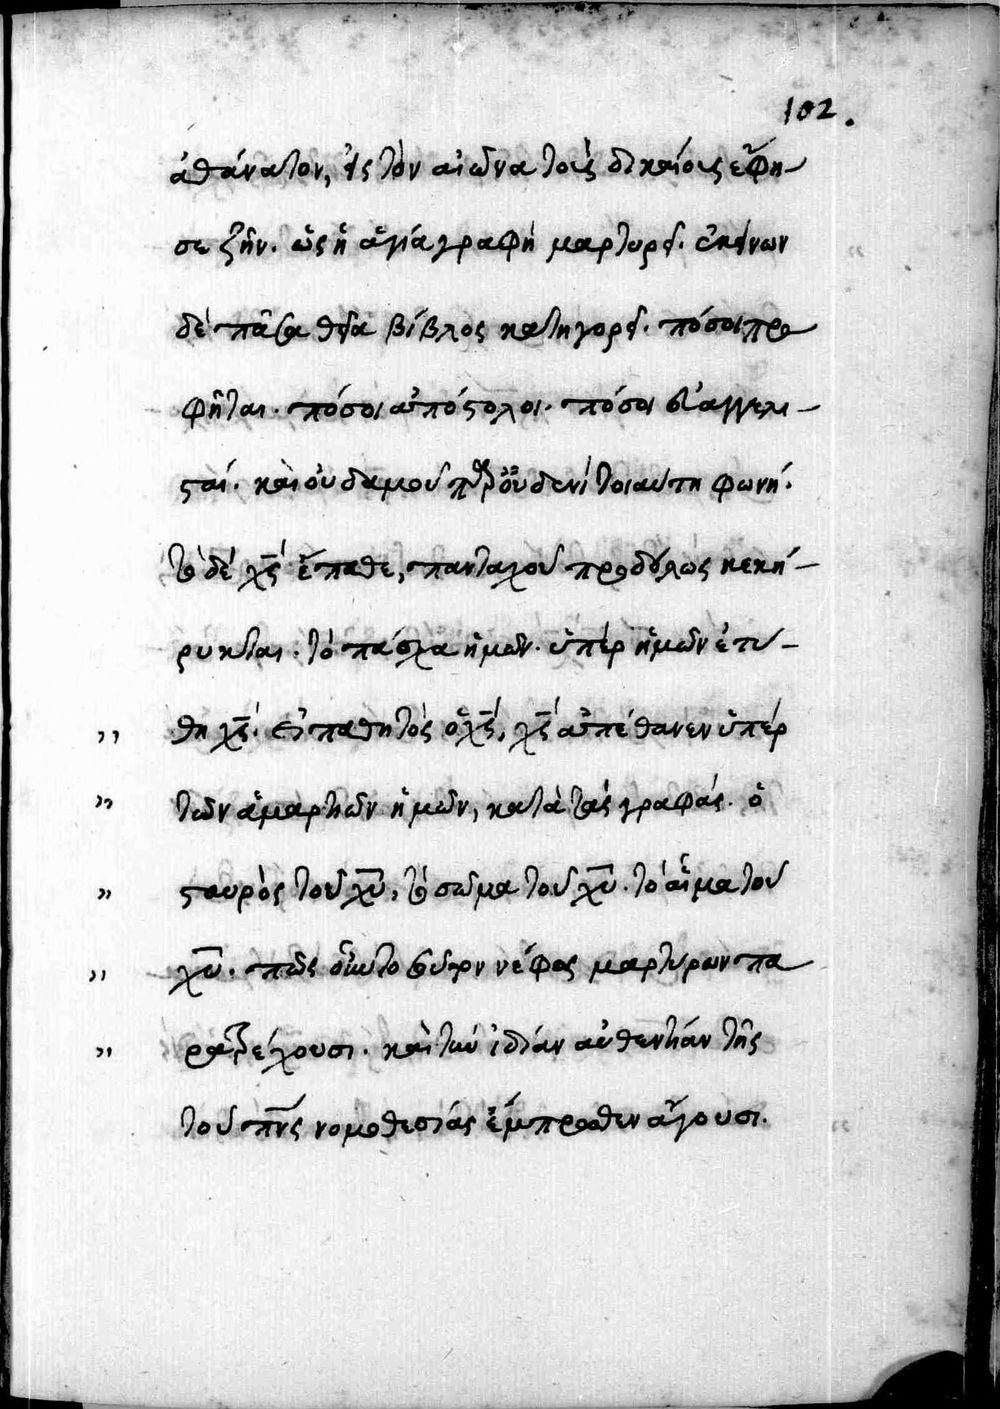 102.
ἀθάνατον, εἰς τὸν αἰῶνα τοὺς δικαίους ἔφη-
σε ζῆν. ὡς ἡ ἁγία γραφὴ μαρτυρεῖ. ἐκείνων
δὲ πᾶσα θεία βίβλος κατηγορεῖ. πόσοι προ
φῆται. πόσοι ἀπόστολοι. πόσοι εὐαγγελι-
σταί. καὶ οὐδαμοῦ οὐδενὶ τοιαύτη φωνή.
τὸ δὲ χς ἔπαθε, πανταχοῦ προδήλως κεκή-
ρυκται. τὸ πάσχα ἡμῶν ὑπὲρ ἡμῶν ἐτύ-
„ θη χς. εἰ παθητὸς ὁ χς, χς ἀπέθανεν ὑπὲρ
„ τῶν ἁμαρτιῶν ἡμῶν, κατὰ τὰς γραφάς. ὁ
„ σταυρὸς τοῦ χυ, τὸ σῶμα τοῦ χυ. τὸ αἷμα τοῦ
„ χυ. πῶς νέφος μαρτύρων πα
„ καὶ τὴν ἰδίαν αὐθεντίαν τῆς
τοῦ πνς νομοθεσίας ἔμπροσθεν ἄγουσι.